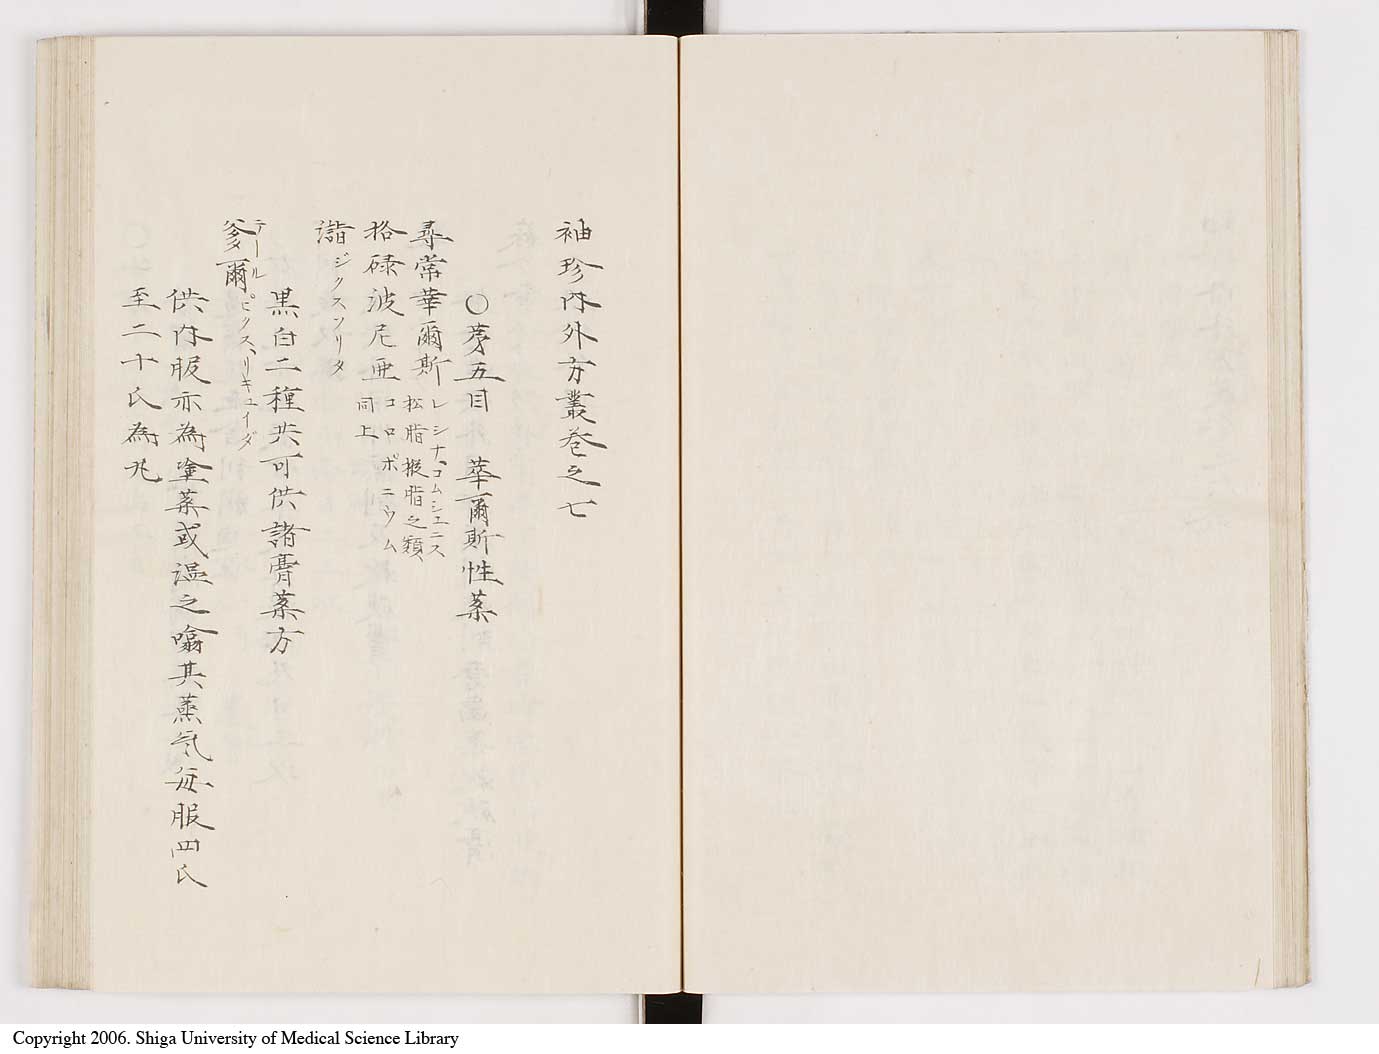 袖珍内外方叢巻之七
○第五目　華爾斯性薬
尋常華爾斯　レシナ、コムシュニス
松脂樅脂之類、
格碌波尼亜　コロポニウム
同上
諧　ジクスソリタ
黒白二種共可供諸膏薬方
爹爾　テール　ピクス、リキュイダ
供内服亦為塗薬或温之噏其蒸気毎服四氏
至二十氏為丸
Copyright 2006. Shiga University of Medical Science Library